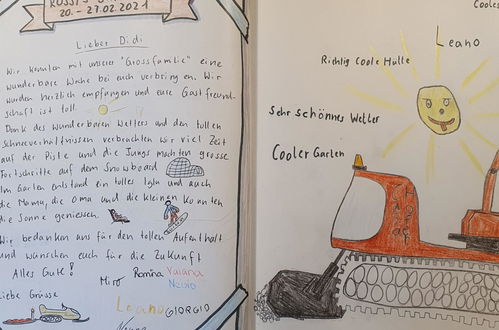 20. - 27.02.2021
Lieber Didi
Wir konnten mit unserer "Grossfamilie" eine
wunderbare Woche bei euch verbringen. Wir
wurden herzlich empfangen und eure Gastfreund-
schaft ist toll.
Dank des wunderbaren Wetters und den tollen
Schneeverhältnissen verbrachten wir viel Zeit
auf der Piste und die Jungs machten grosse
Fortschritte auf dem Snowboard
Im Garten entstand ein tolles Iglu und auch
die Mama, die Oma und die kleinen konnten
die Sonne geniessen.
Wir bedanken uns für den tollen Aufenthalt
und wünschen euch für die Zukunft
Alles Gute!
Miro Romina Vaiana
Nevio
Liebe Grüsse
Leano GIORGIO
Cooles
Leano
Richtig Coole Hütte
Sehr Schönnes Wetter
Cooler Garten